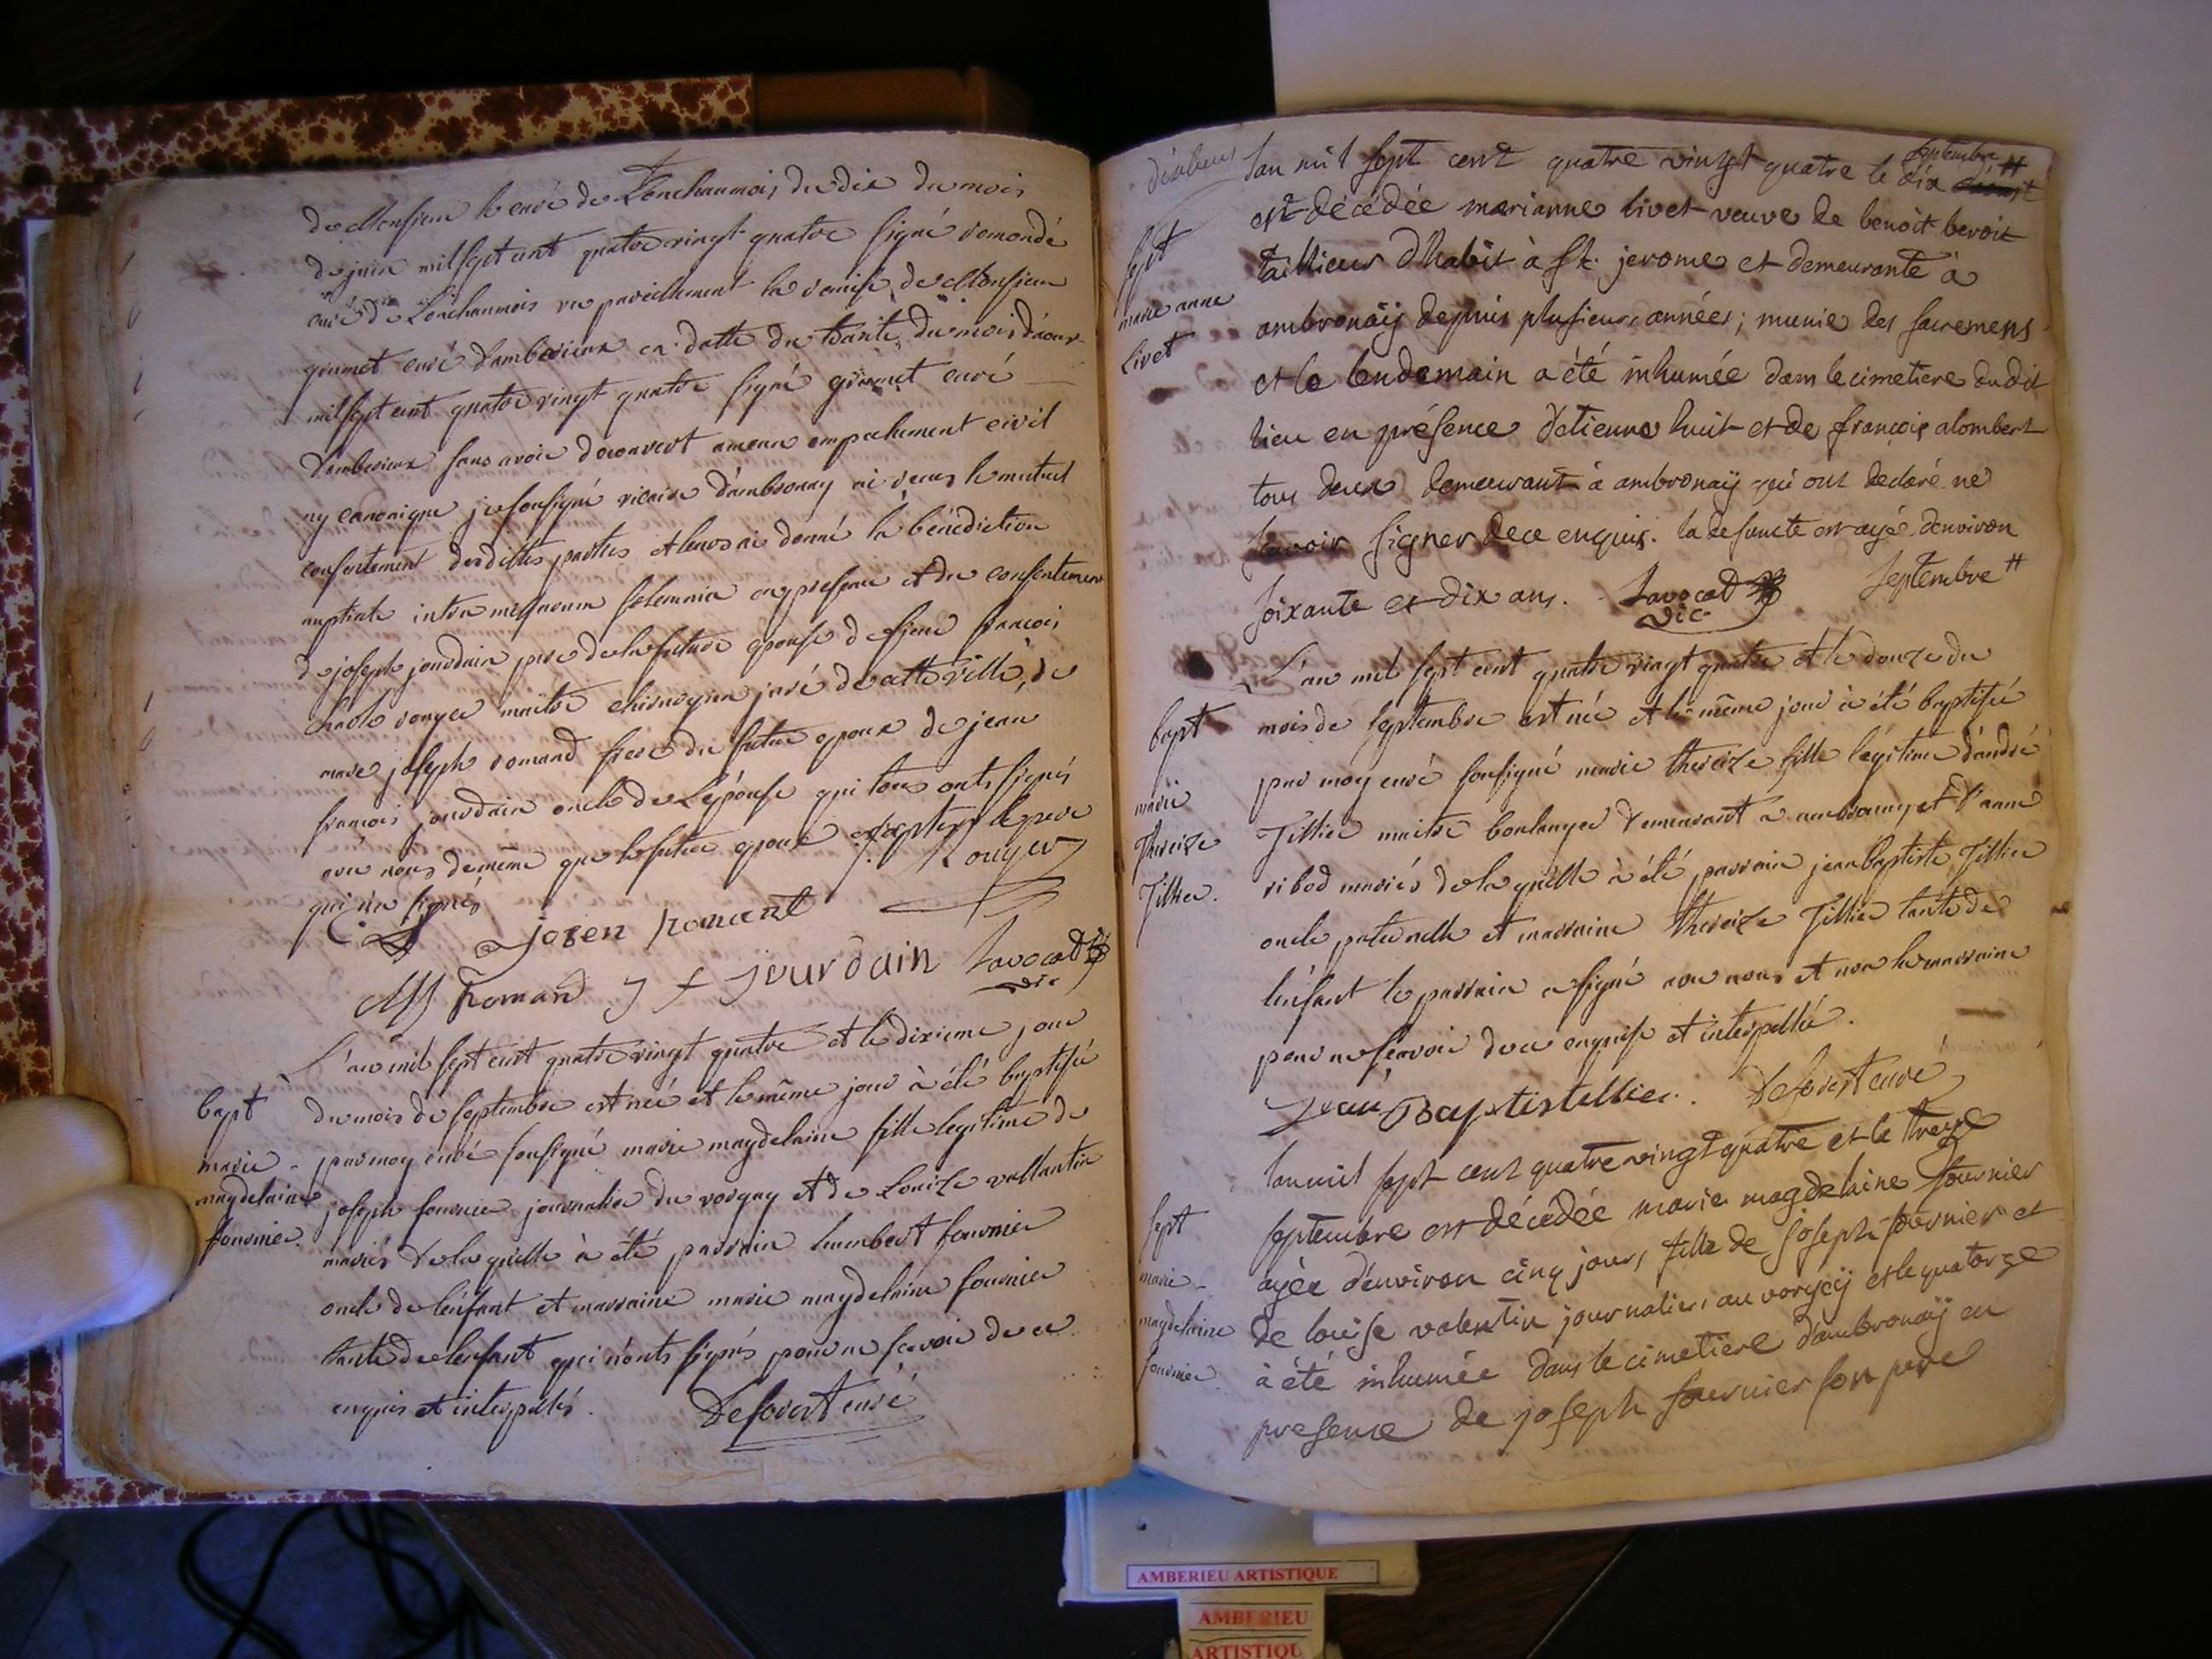 de Monsieur le curé de Lonchaumois du dix du mois
de juin mil sept cent quatre vingt quatre signé romond
curé de Lonchaumois vu pareillement la remise de Monsieur
grumet curé d'amberieux en datte du trante du mois d'aout
mil sept cent quatre vingt quatre signé grumet curé
d'amberieux sans avoir decouvert aucun empechement civil
ny canonique je soussigné vicaire d'ambronay ai recus le mutuel
consentement desdittes parties et leurs ai donné la bénédiction
nuptiale intra missarum solemnia en presence et du consentement
de joseph jourdain pere de la future epouse de sieur francois
rouyer maitre chirurgien juré de cette ville, de
marc joseph romand frere du futur epoux de jean
francois jourdain oncle de l'épouse qui tous onts signés
avec nous de meme que le futur epoux excepté le pere
qui n'a signés
Rouyer
josep romant
MJ Romand J f Jourdain Lavocat
vic
L'an mil sept cent quatre vingt quatre et le dixieme jour
bapt du mois de septembre est née et le même jour à été baptisée
marie par moy curé soussigné marie magdelaine fille legitime de
magdelaine joseph fournier journalier du vorgay et de Louize vallantin
fournier. mariés de laquelle à été parrain humbert fournier
oncle de l'enfant et marraine marie magdelaine fournier
tante de l'enfant qui n'onts signés pour ne scavoir de ce
enquis et interpellés. Deforest curé
lan mil sept cent quatre vingt quatre le dix septembre #
sept est décédée marianne livet veuve de benoit benoit
marie anne taillieur d'habit à st. jerome et demeurante à
livet ambronaÿ depuis plusieurs années; munie des sacremens
et le lendemain a été inhumée dans le cimetiere dudit
lieu en présence d'etienne huit et de françois alombert
tous deux demeurant à ambronaÿ qui ont declaré ne
savoir signer de ce enquis. la defuncte est agée denviron
soixante et dix ans. Lavocat septembre #
vic
L'an mil sept cent quatre vingt quatre et le douze du
bapt mois de septembre est née et le même jour à été baptisée
marie par moy curé soussigné marie thereize fille légitime d'andré
thereize Tillier maitre boulanger demeurant a ambronay et d'anne
Tillier. ribod mariés de laquelle à été parrain jean baptiste Tillier
oncle paternelle et marraine thereize Tillier tante de
l'enfant le parrain a signé avec nous et non la marraine
pour ne scavoir de ce enquise et interpellée.
Jean Baptistellier. Deforest curé
lan mil sept cent quatre vingt quatre et le treize
sept septembre est décédée marie magdelaine fournier
marie agée d'environ cinq jours, fille de joseph fournier et
magdelaine de louise valentin journaliers au vorgeÿ et le quatorze
fournier à été inhumée dans le cimetiere d'ambronaÿ en
presence de joseph fournier son pere
AMBERIEU ARTISTIQUE
AMBERIEU
ARTISTIQU